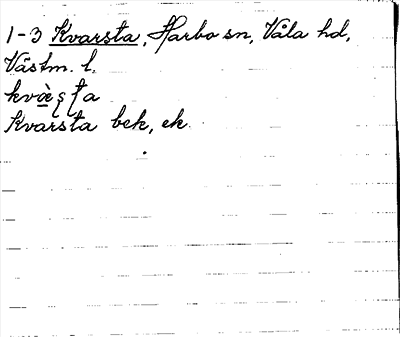 1-3 Kvarsta, Harbo sn, Våla hd,
Västm. l.
Kvarsta bek, ek